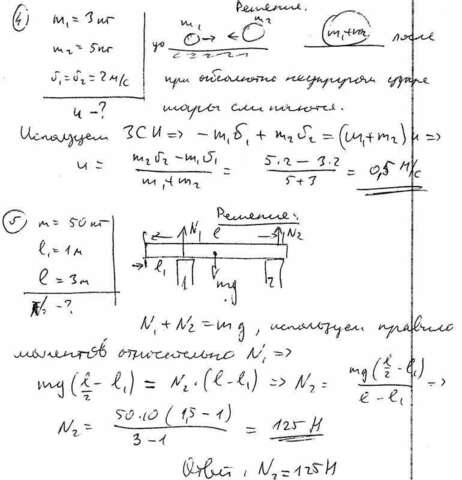 ④ m₁ = 3 кг
m₂ = 5 кг
υ₁ = υ₂ = 2 м/с
u - ?
Решение.
до m₁ m₂ m₁+m₂ после
при абсолютно неупругом ударе
шары слипаются.
Используем ЗСИ => -m₁υ₁ + m₂υ₂ = (m₁+m₂)u =>
u = (m₂υ₂ - m₁υ₁)/(m₁+m₂) = (5·2 - 3·2)/(5+3) = 0,5 м/с
⑤ m = 50 кг
l₁ = 1м
l = 3м
N₂ - ?
Решение:
N₁ l N₂
l₁ 1 mg 2
N₁ + N₂ = mg, используем правило
моментов относительно N₁ =>
mg(l/2 - l₁) = N₂·(l-l₁) => N₂ = mg(l/2 - l₁)/(l - l₁) =>
N₂ = 50·10(1,5-1)/(3-1) = 125 Н
Ответ: N₂ = 125Н